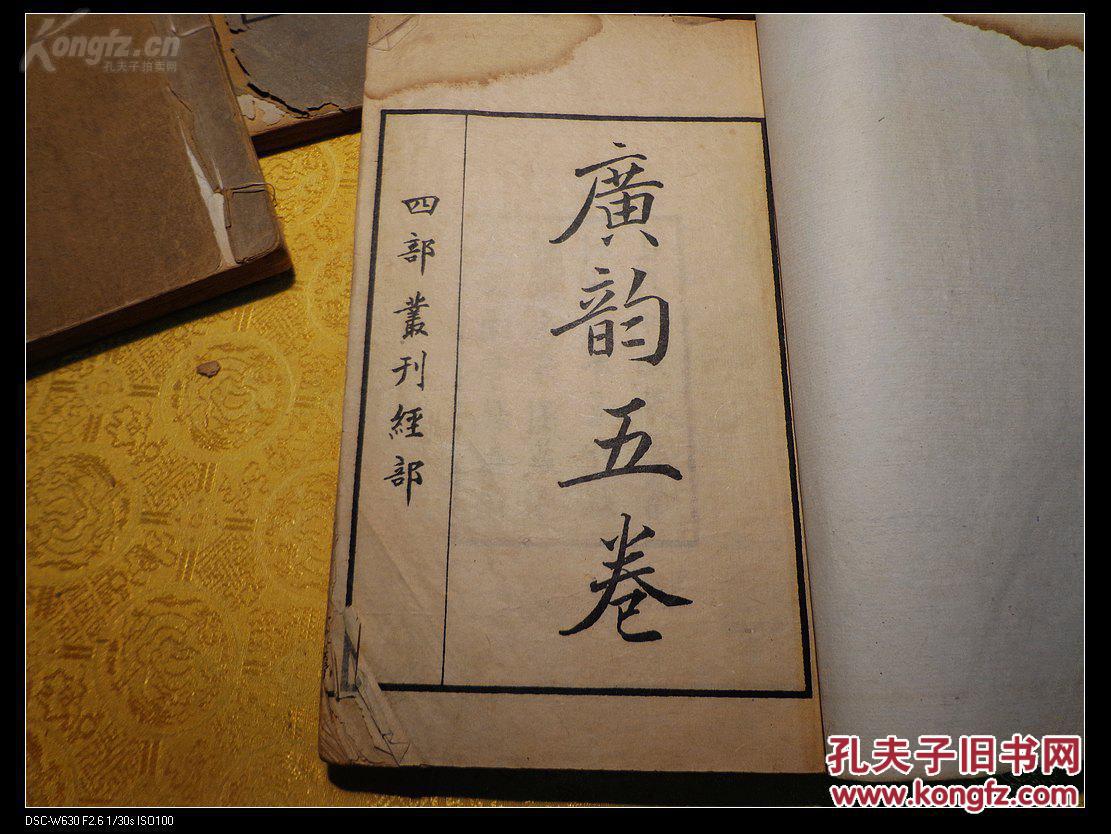 Kongfz.cn
孔夫子拍卖网
廣韵五卷
四部叢刊經部
孔夫子旧书网
www.kongfz.com
DSC-W630 F2.6 1/30s ISO100